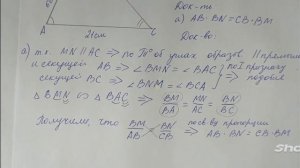 Док-ть
а) AB·BN=CB·BM
Док-во:
6
21см
A
C
а) т.к. MN || AC ⇒ по Т° об углах образов. ||прямыми
и секущей AB ⇒ ∠BMN = ∠BAC
секущей BC ⇒ ∠BNM = ∠BCA
⇒ по I признаку подобия
△BMN ∽ △BAC ⇒ BM/BA = MN/AC = BN/BC
Получаем, что BM/AB = BN/CB по св-ву пропорции ⇒ AB·BN = CB·BM